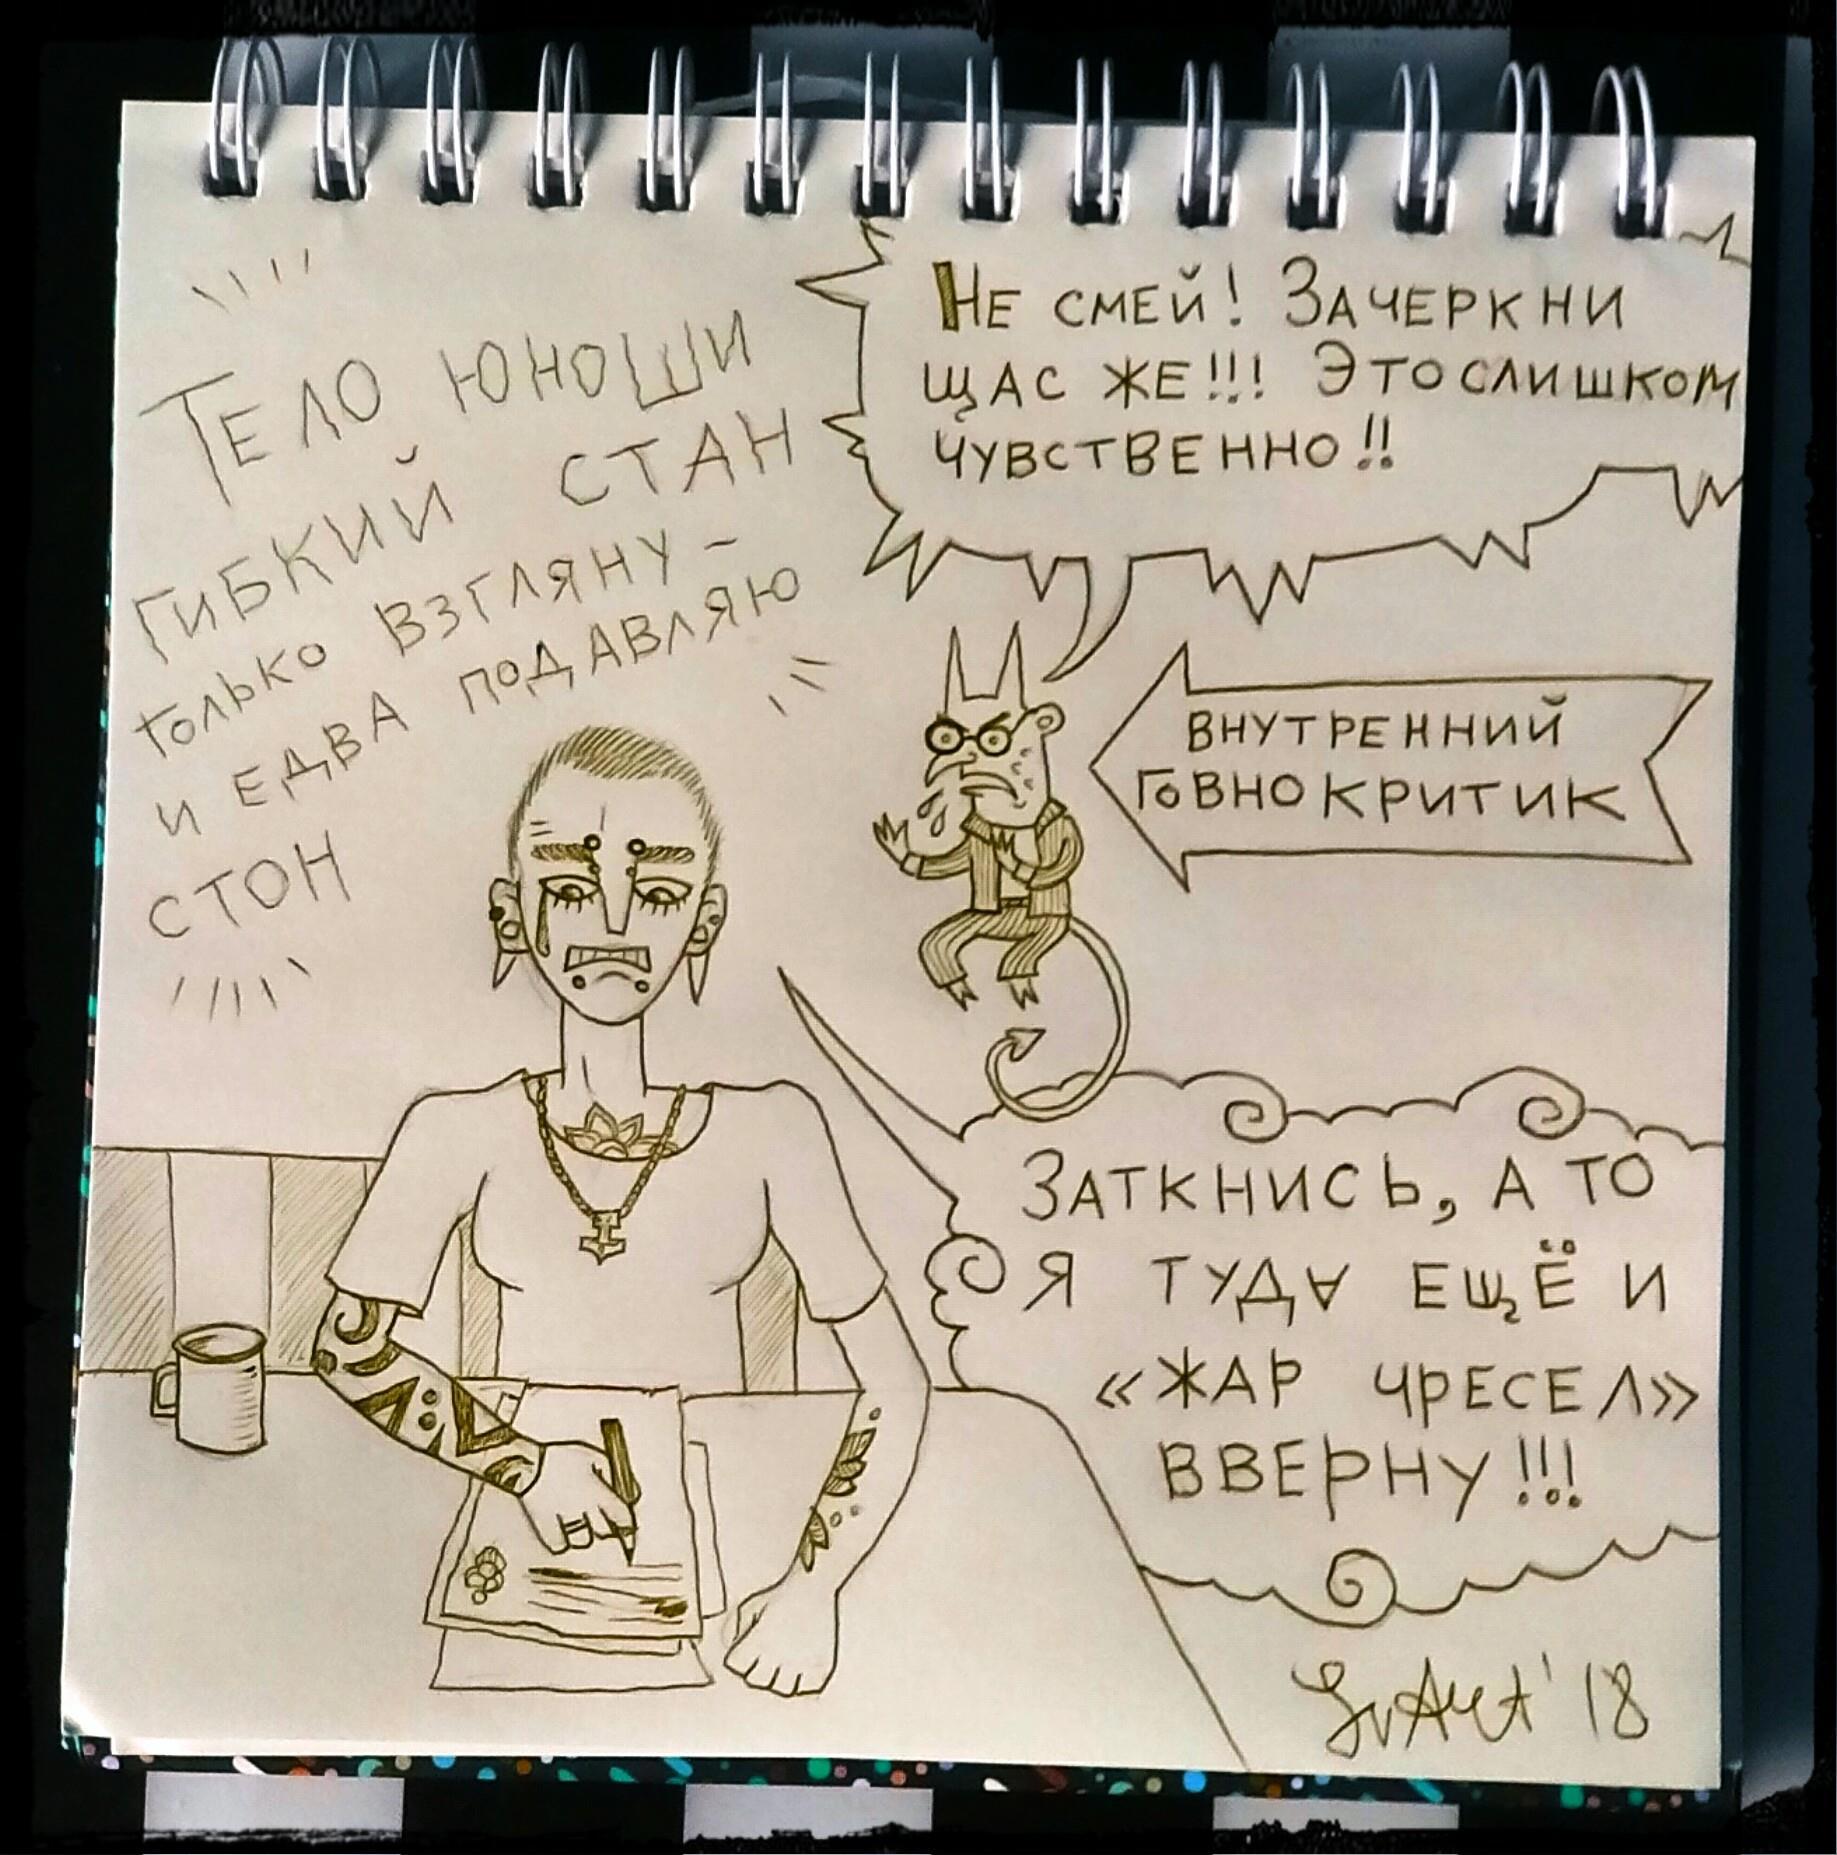 Тело юноши
гибкий стан
только взгляну –
и едва подавляю
стон
Не смей! Зачеркни
щас же!!! Это слишком
чувственно!!
внутренний
говнокритик
Заткнись, а то
я туда ещё и
«жар чресел»
вверну!!!
'18